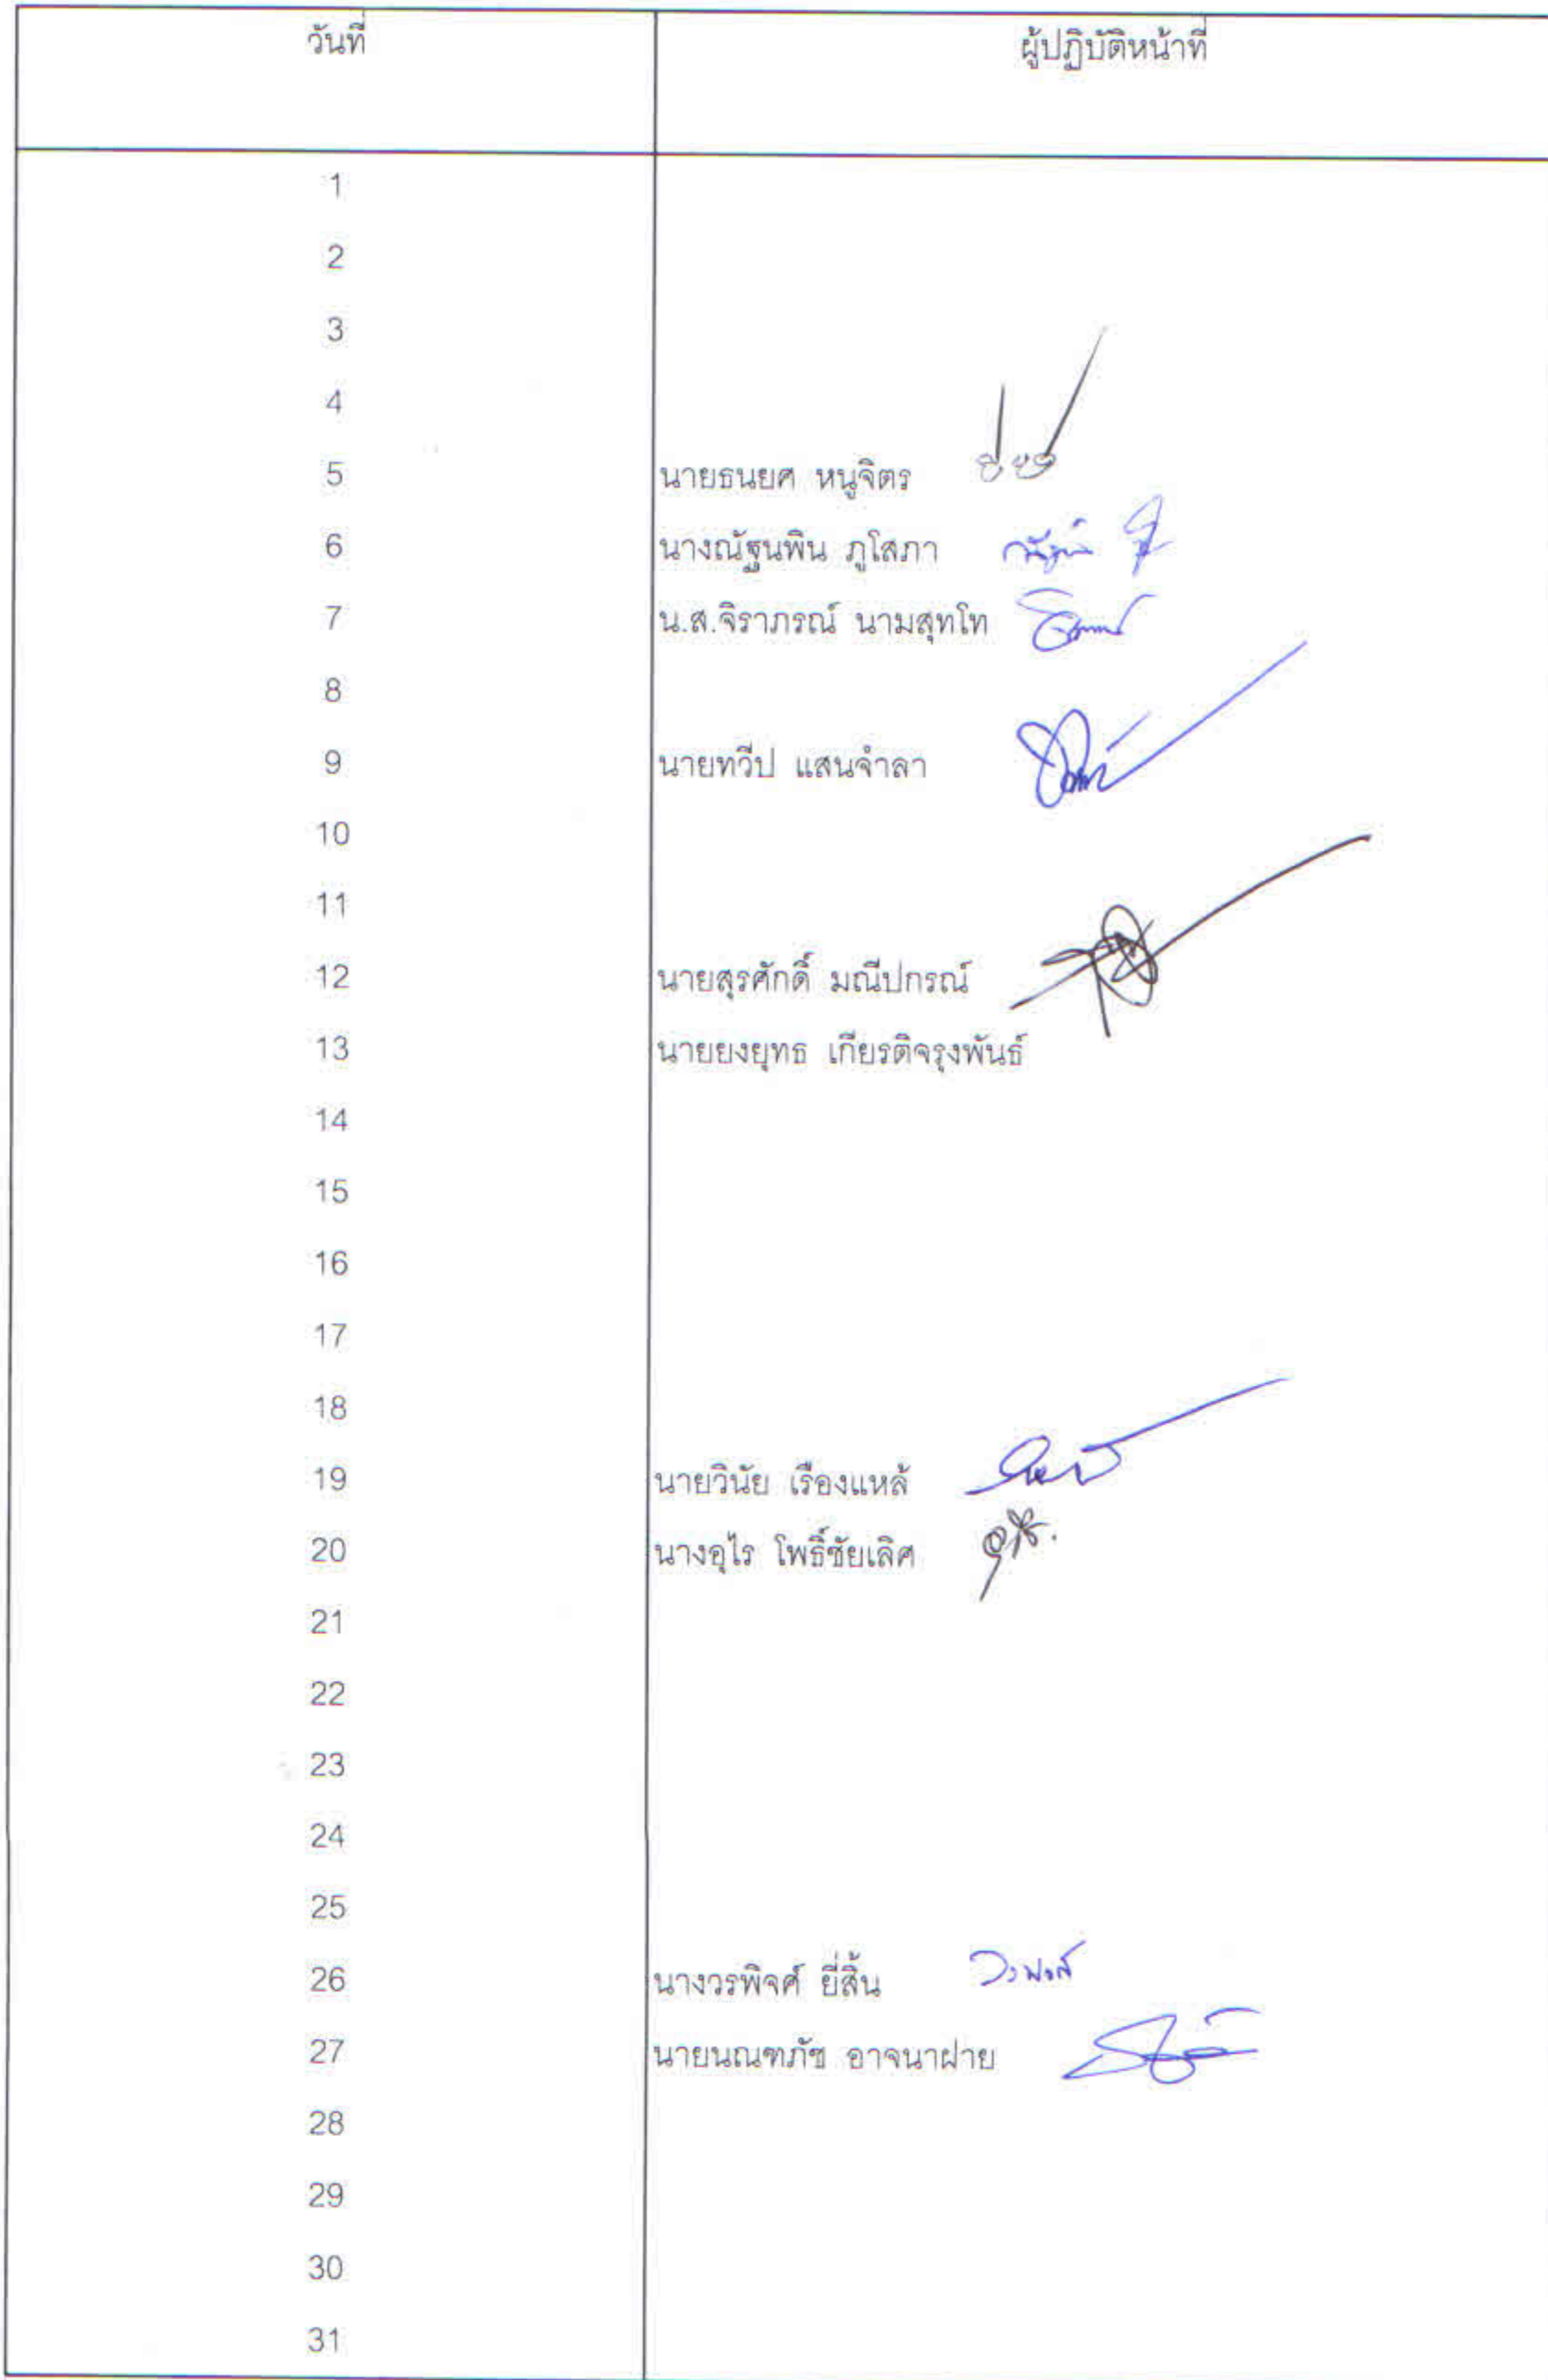 วันที่ ผู้ปฏิบัติหน้าที่
1
2
3
4
5 นายธนยศ หนูจิตร
6 นางณัฐนพิน ภูโสภา
7 น.ส.จิราภรณ์ นามสุทโท
8
9 นายทวีป แสนจำลา
10
11
12 นายสุรศักดิ์ มณีปกรณ์
13 นายยงยุทธ เกียรติจรุงพันธ์
14
15
16
17
18
19 นายวินัย เรืองแหล้
20 นางอุไร โพธิ์ชัยเลิศ
21
22
23
24
25
26 นางวรพิจศ์ ยี่สิ้น
27 นายนณฑภัช อาจนาฝาย
28
29
30
31